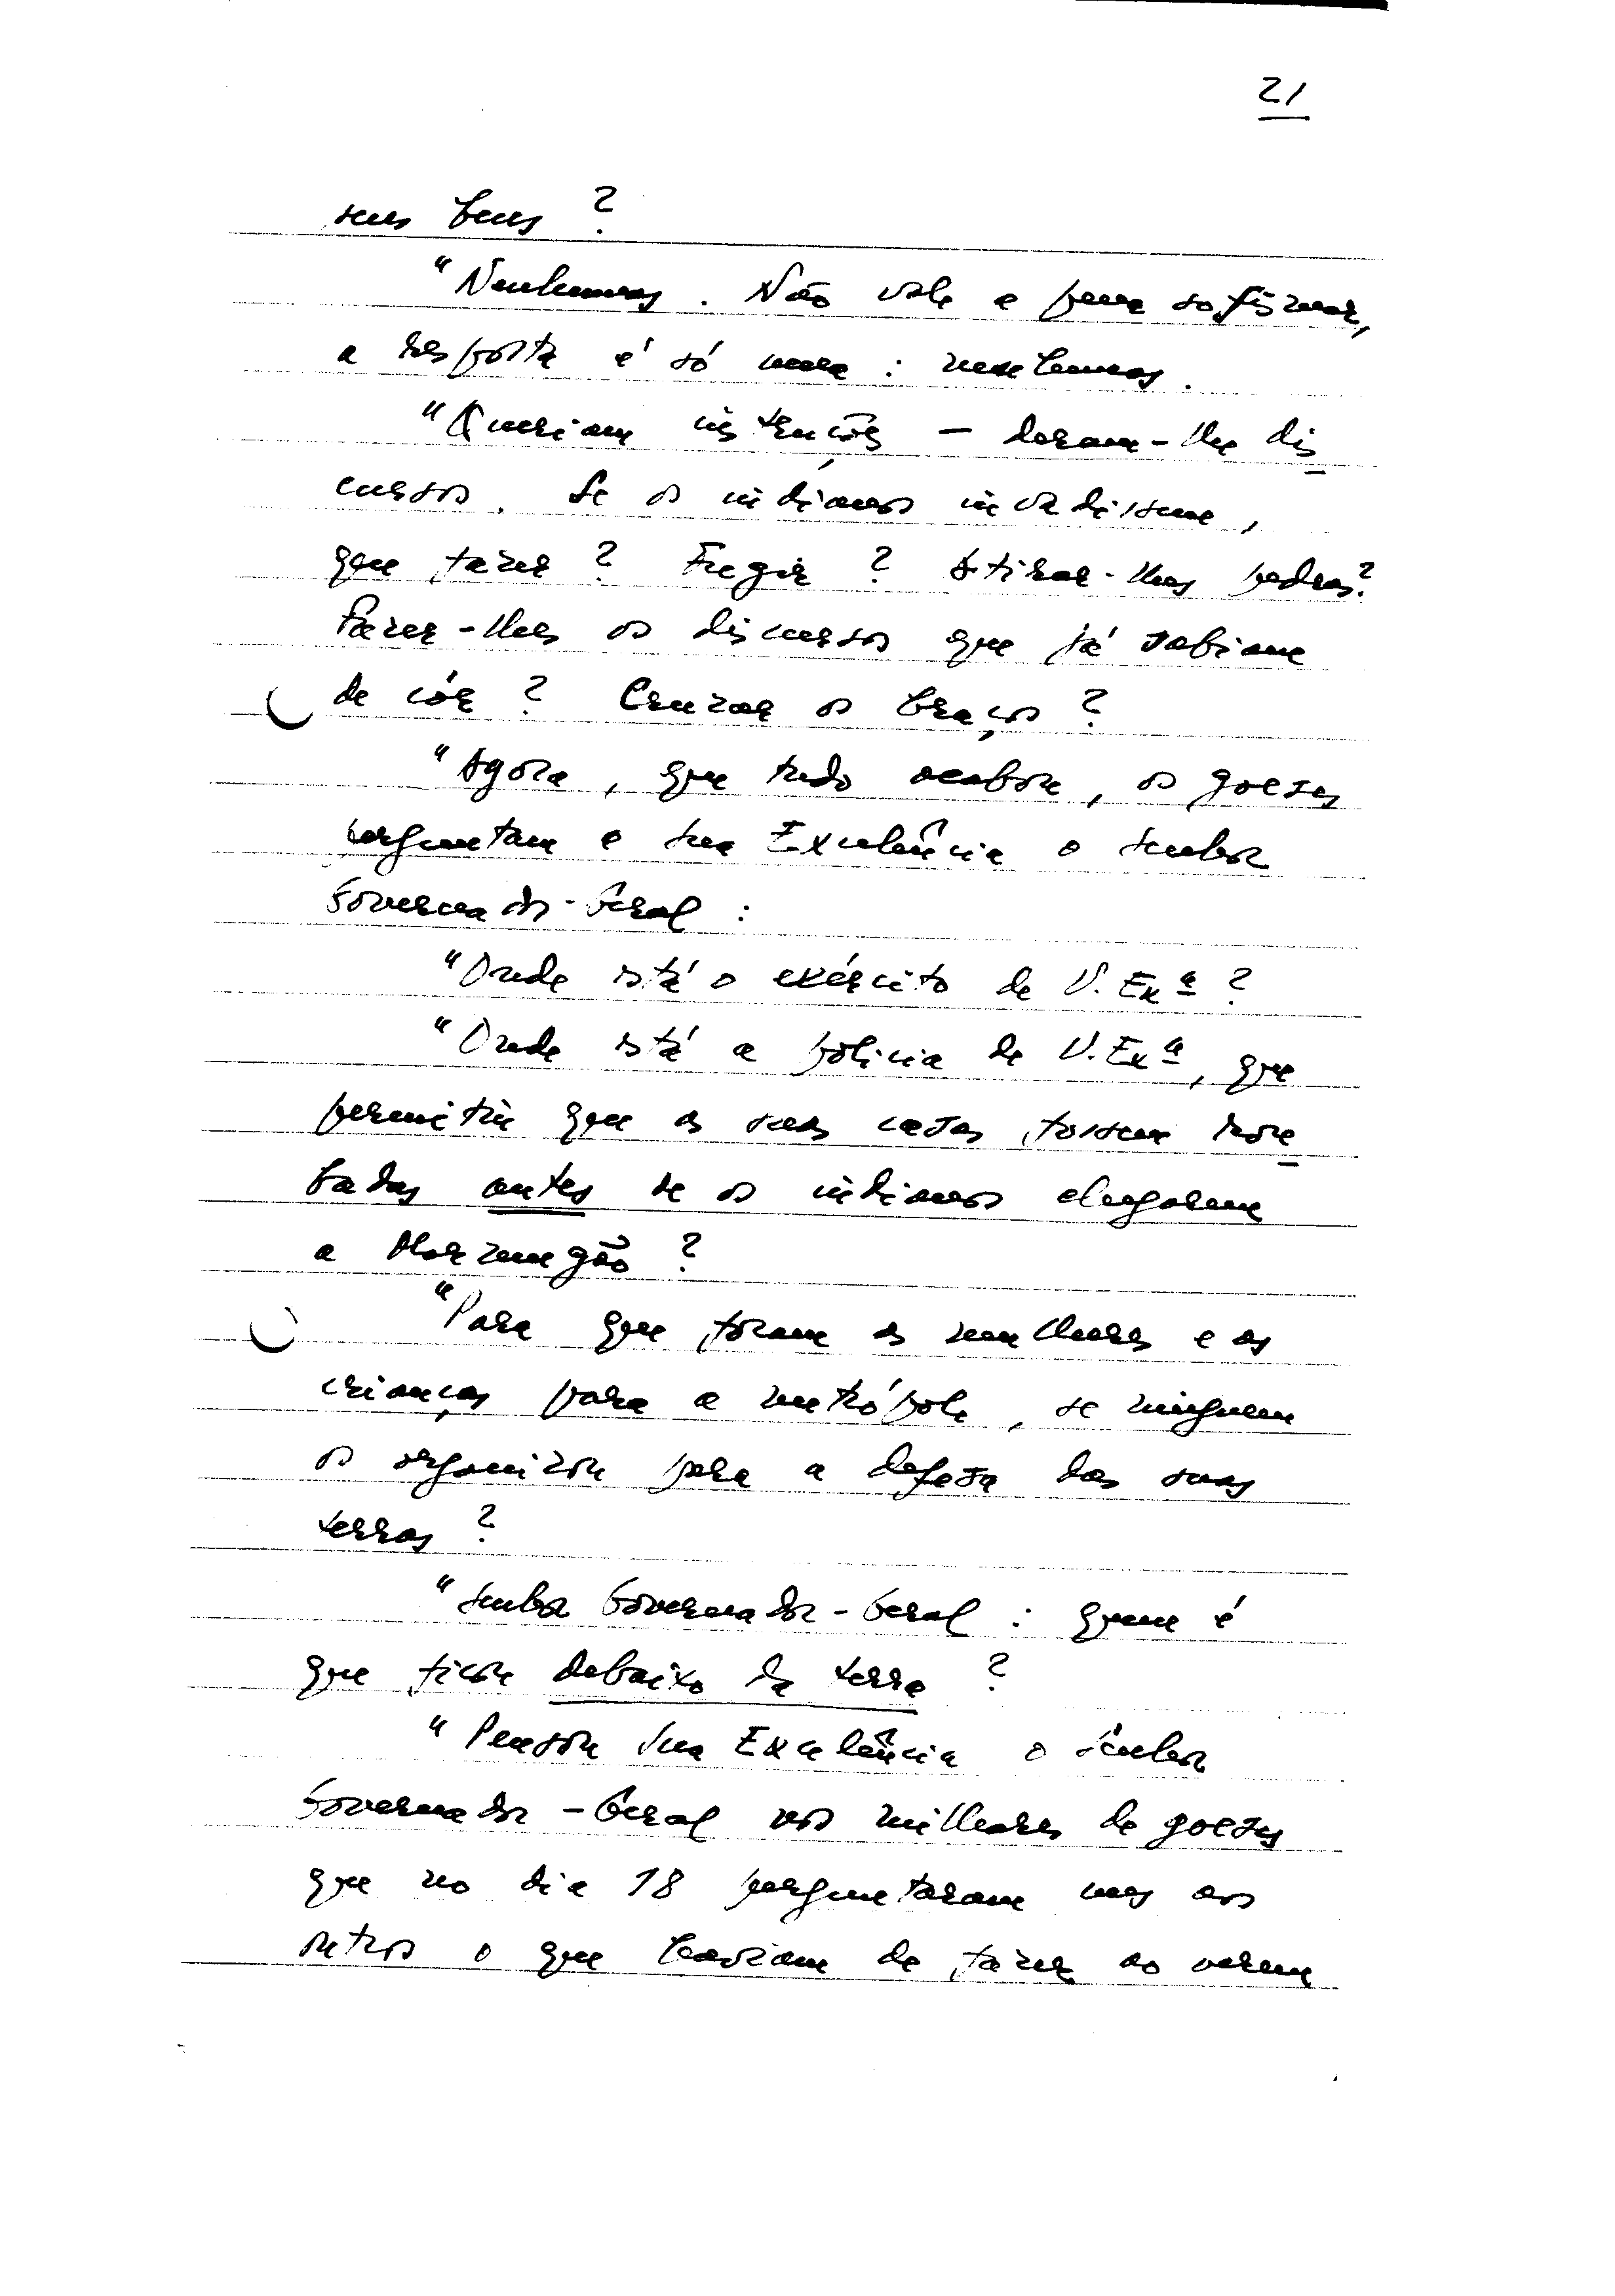 21
seus bens ?
"Nenhumas. Não vale a pena sofismar,
a resposta é só uma : nenhumas.
"Queriam instruções - deram-lhe dis
cursos. Se os indianos invadissem,
que fazer ? Fugir ? Atirar-lhes pedras ?
Fazer-lhes os discursos que já sabiam
de cór ? Cruzar os braços ?
"Agora, que tudo acabou, os goeses
perguntam a Sua Excelência o Senhor
Governador-Geral :
"Onde está o exército de V. Exª ?
"Onde está a polícia de V. Exª, que
permitiu que as suas casas fossem rou
badas antes de os indianos chegarem
a Mormugão ?
"Para que foram as mulheres e as
crianças para a metrópole, se ninguem
os organizou para a defesa das suas
terras ?
"Senhor Governador-Geral : quem é
que ficou debaixo da terra ?
"Pensou Sua Excelência o Senhor
Governador-Geral nos milhares de goeses
que no dia 18 perguntaram uns aos
outros o que haviam de fazer ao verem